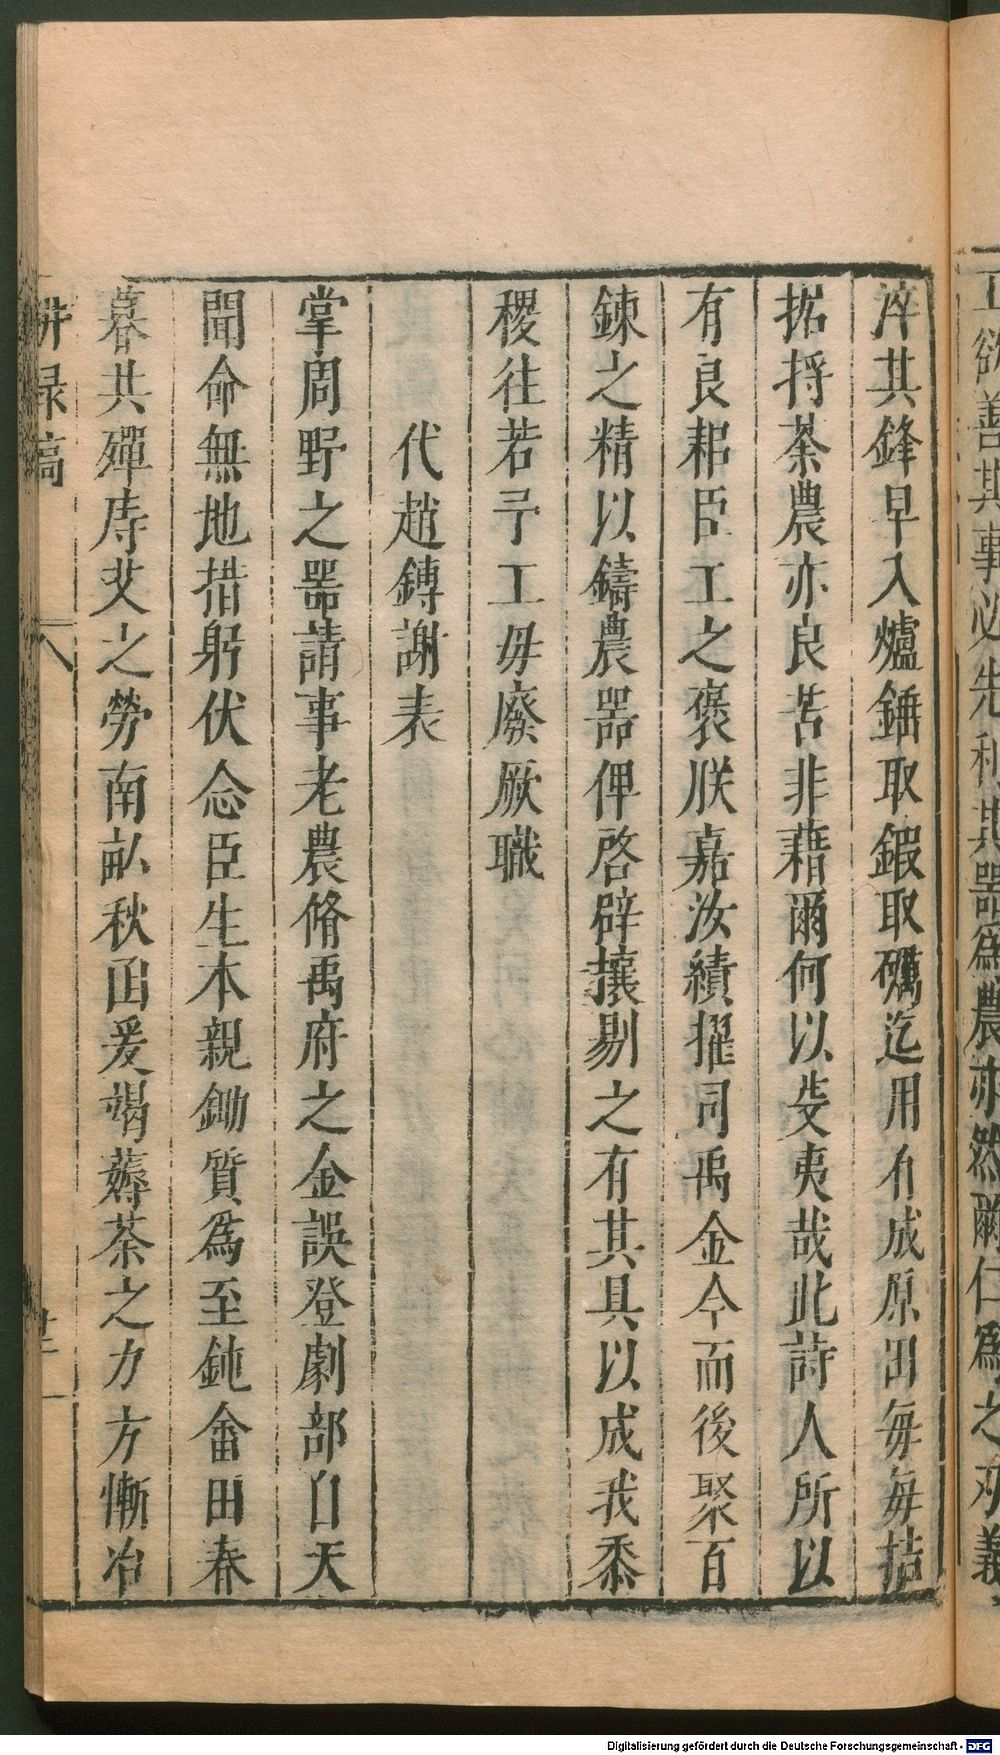 工欲善其事必先利其器為農亦然爾仁為之刃義
淬其鋒早入爐錘取鍜取礪迄用有成原田每每拮
据捋荼農亦良苦非藉爾何以芟夷哉此詩人所以
有良耜臣工之褒朕嘉汝績擢司禹金今而後聚百
鍊之精以鑄農器俾啓辟攘剔之有其具以成我黍
稷往若予工毋廢厥職
代趙鎛謝表
掌周野之器請事老農脩禹府之金誤登劇部自天
聞命無地措躬伏念臣生本親鋤質為至鈍畬田春
暮共殫庤艾之勞南畝秋函爰竭薅荼之力方慚冶
耕録稿
八
廿二
Digitalisierung gefördert durch die Deutsche Forschungsgemeinschaft - DFG